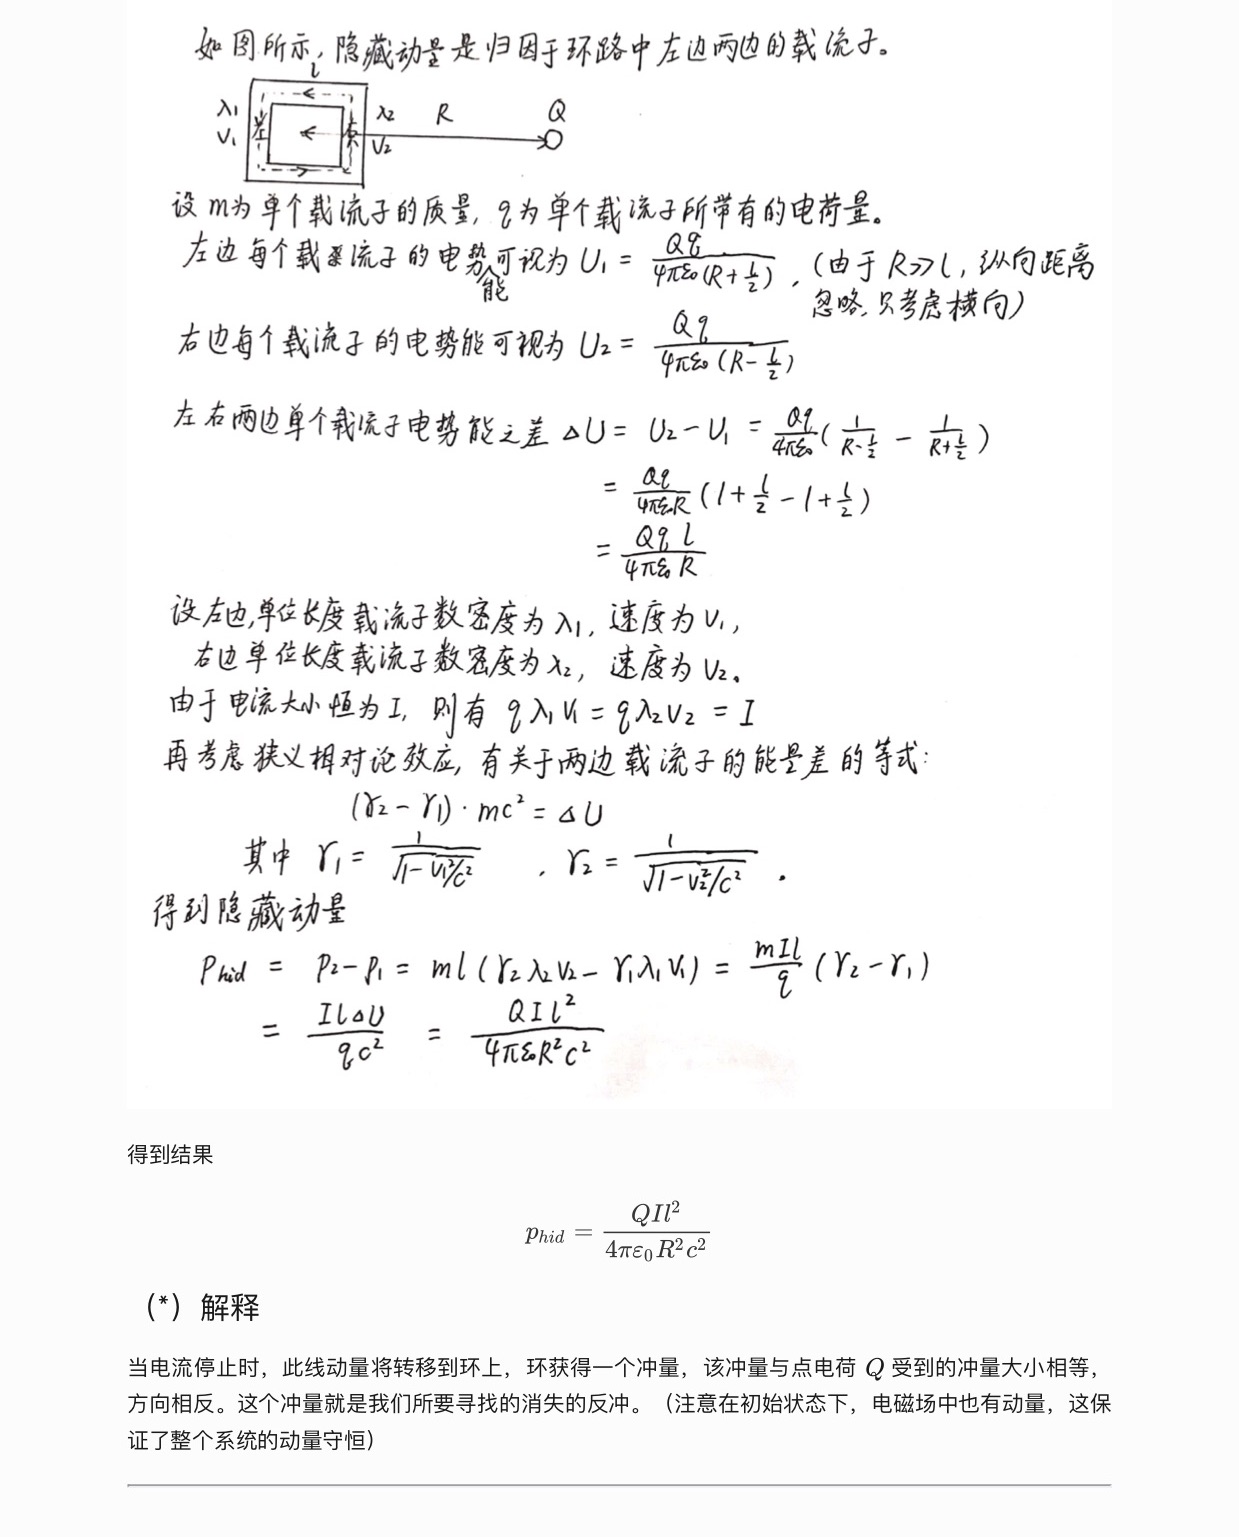 如图所示,隐藏动量是归因于环路中左边两边的载流子。
l
λ1 λ2 R Q
V1 差 V2
设m为单个载流子的质量,q为单个载流子所带有的电荷量。
左边每个载流子的电势能可视为 U₁ = Qq/4πε₀(R+l/2) ,(由于R≫l,纵向距离
忽略,只考虑横向)
右边每个载流子的电势能可视为 U₂ = Qq/4πε₀(R-l/2)
左右两边单个载流子电势能之差 ΔU = U₂-U₁ = Qq/4πε₀(1/(R-l/2) - 1/(R+l/2))
= Qq/4πε₀R(1+l/2-1+l/2)
= Qql/4πε₀R
设左边,单位长度载流子数密度为λ₁,速度为V₁,
右边单位长度载流子数密度为λ₂,速度为V₂。
由于电流大小恒为I,则有 qλ₁V₁=qλ₂V₂=I
再考虑狭义相对论效应,有关于两边载流子的能量差的等式:
(γ₂-γ₁)·mc²=ΔU
其中 γ₁=1/√(1-V₁²/c²) , γ₂=1/√(1-V₂²/c²) .
得到隐藏动量
Phid = P₂-P₁ = ml(γ₂λ₂V₂-γ₁λ₁V₁) = mIl/q(γ₂-γ₁)
= IlΔU/qc² = QIl²/4πε₀R²c²
得到结果
p_hid = QIl²/4πε₀R²c²
(*)解释
当电流停止时,此线动量将转移到环上,环获得一个冲量,该冲量与点电荷 Q 受到的冲量大小相等,
方向相反。这个冲量就是我们所要寻找的消失的反冲。(注意在初始状态下,电磁场中也有动量,这保
证了整个系统的动量守恒)